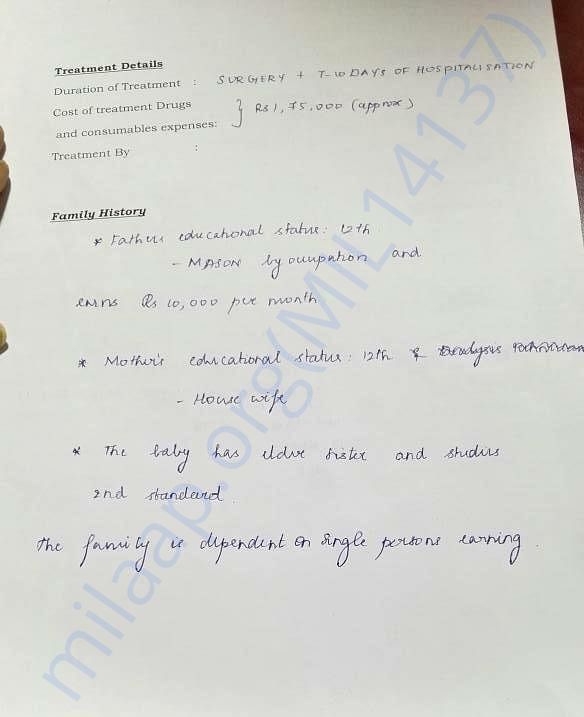 Treatment Details
Duration of Treatment : SURGERY + 7-10 DAYS OF HOSPITALISATION
Cost of treatment Drugs
and consumables expenses: } Rs 1,75,000 (approx)
Treatment By :
Family History
* Father's educational status: 12th
- MASON by occupation and
earns Rs 10,000 per month
* Mother's educational status: 12th &
- House wife
* The baby has elder sister and studies
2nd standard.
The family is dependent on single persons earning.
milaap.org(MIL14137)